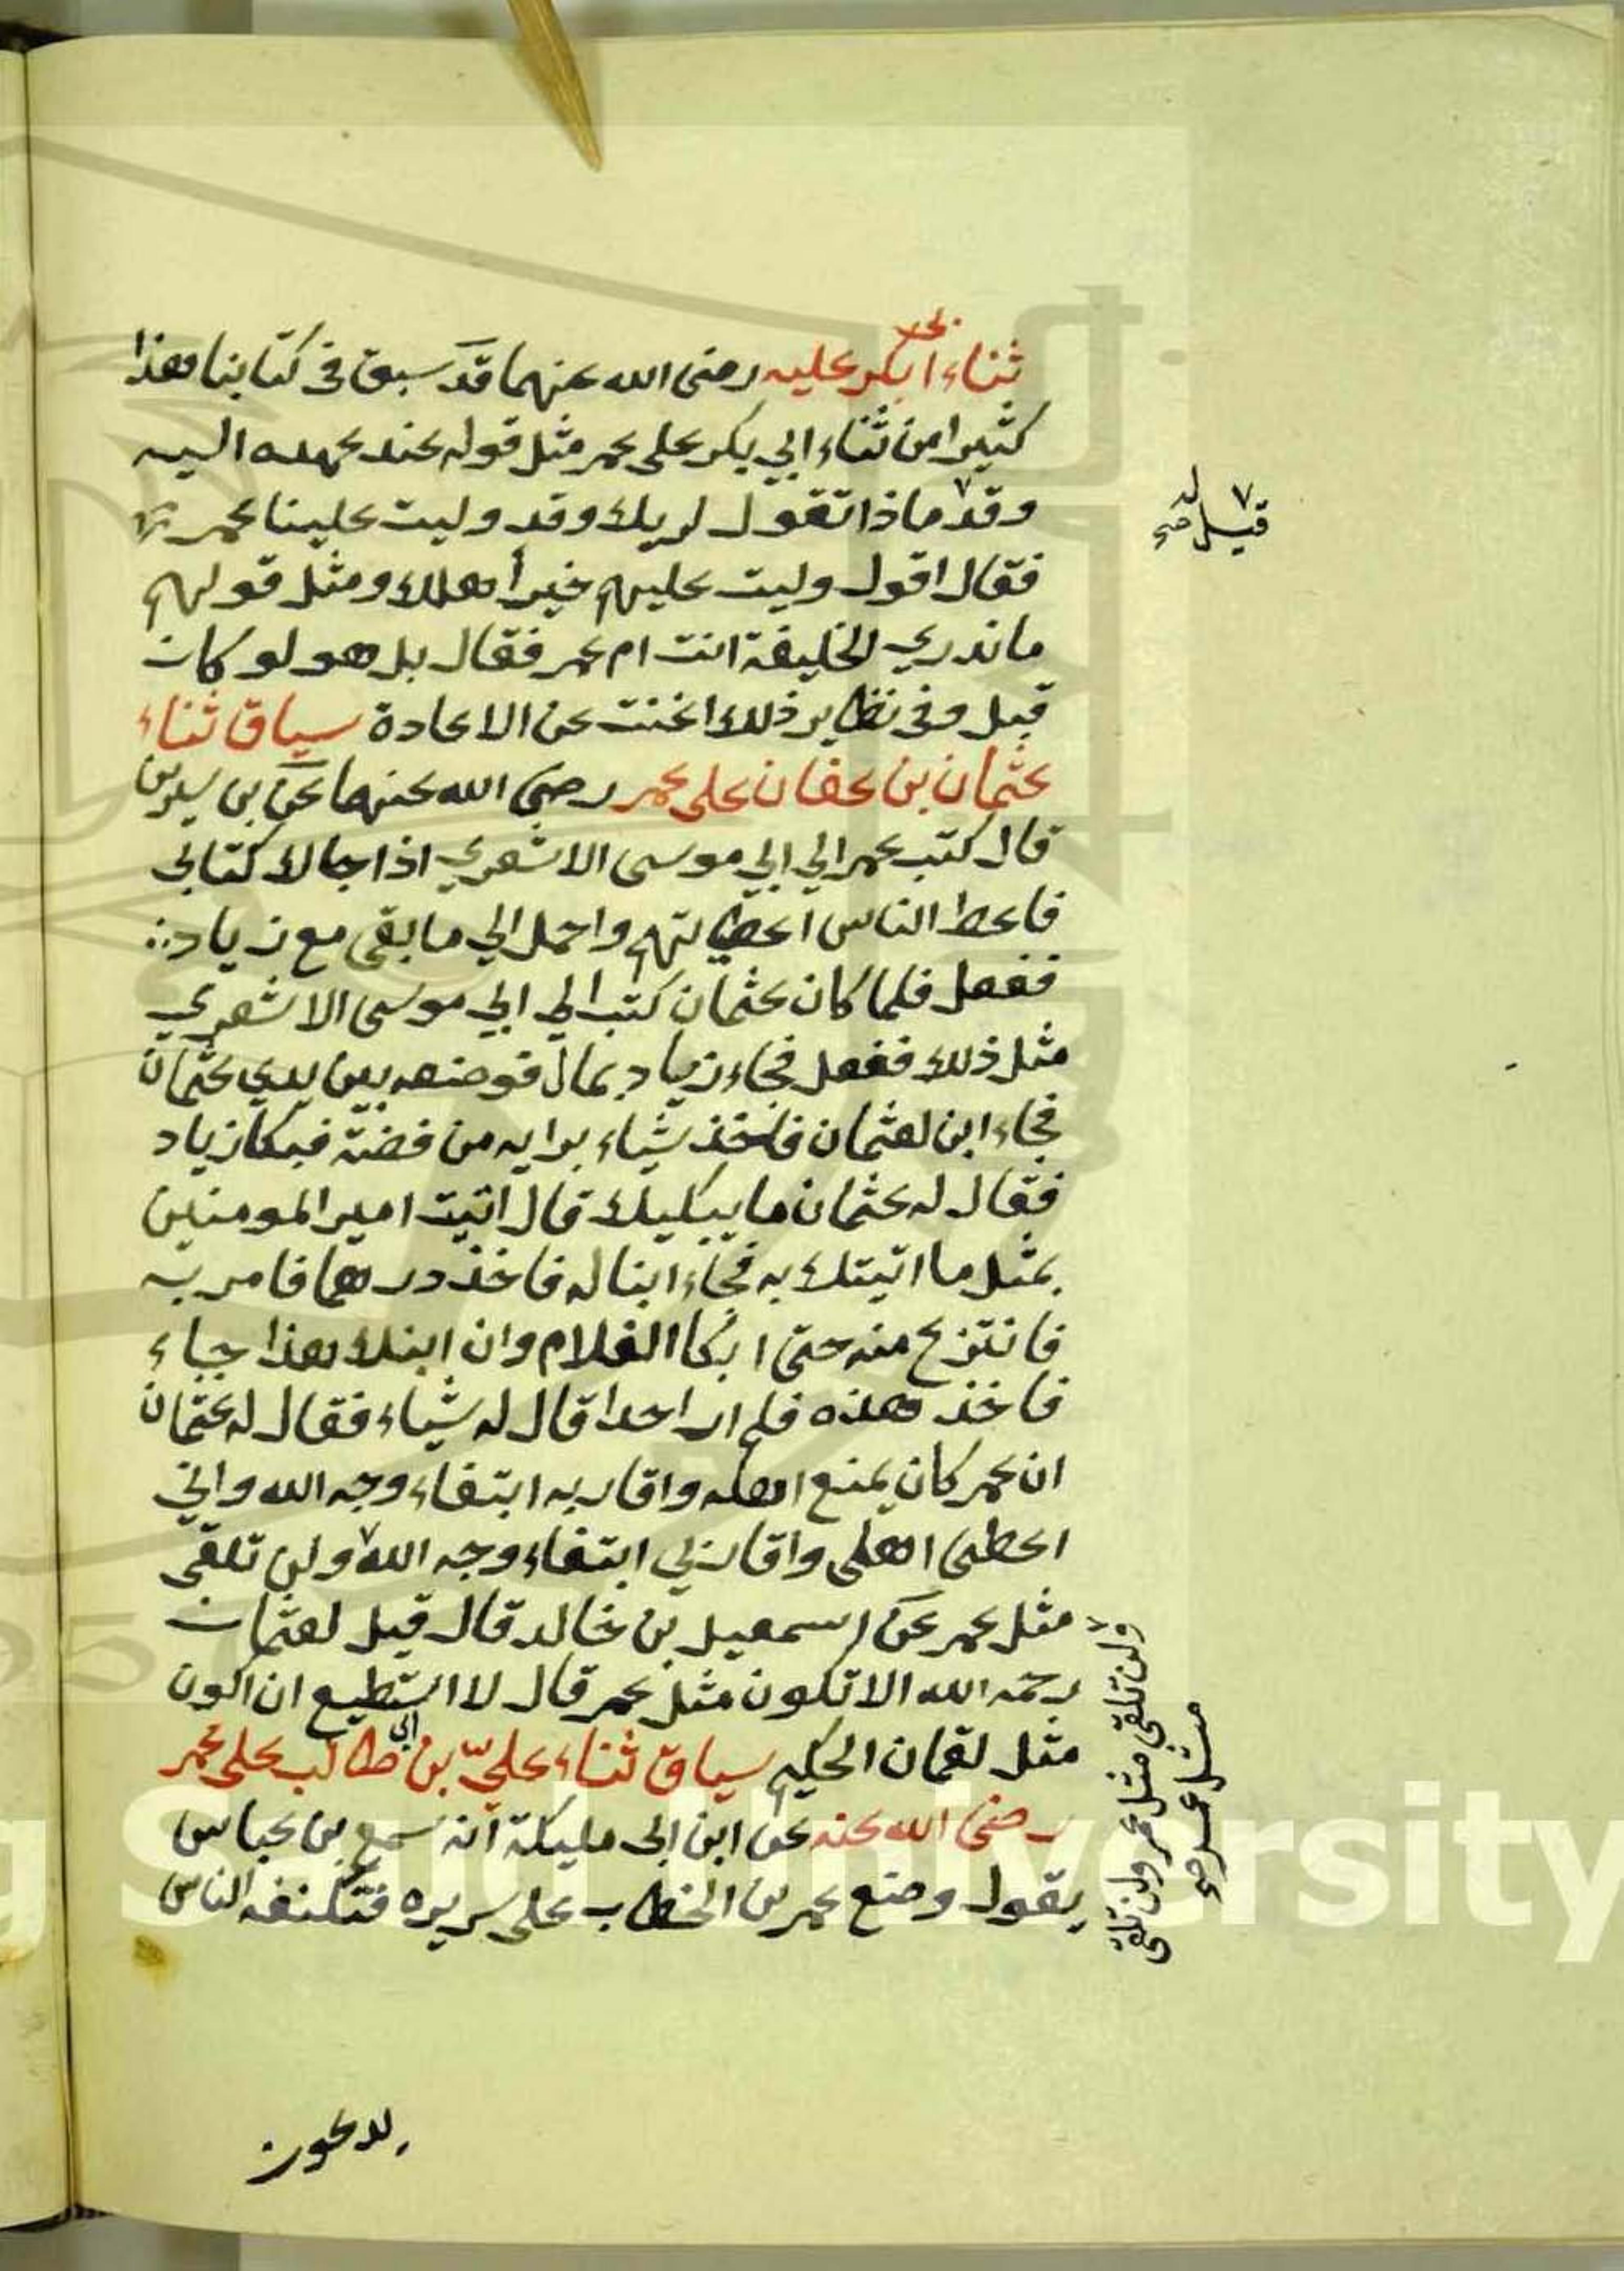 ثناء ابي بكر عليه رضى الله عنهما قد سبق في كتابنا هذا
كثيرا من ثناء ابي بكر على عمر مثل قوله عند عهده اليه
وقد ماذا تقول لربك وقد وليت علينا عمر
قيل له صح
فقال اقول وليت عليهم خيرا اهلك ومثل قولهم
ماندري الخليفة انت ام عمر فقال بل هو لو كان
قبل وفى نظاير ذلك اغنت عن الاعادة سياق ثناء
عثمان بن عفان على عمر رضى الله عنهما عن بن سيرين
قال كتب عمر الي ابي موسى الاشعري اذا جاك كتابى
فاعط الناس اعطياتهم واحمل الي ما بقى مع زياد
ففعل فلما كان عثمان كتب الي ابي موسى الاشعري
مثل ذلك ففعل فجاء زياد بمال فوضعه بين يدي عثمان
فجاء ابن لعثمان فاخذ شياء برايه من فضة فبكا زياد
فقال له عثمان ما يبكيك قال اتيت امير المومنين
بمثل ما اتيتك به فجاء ابنا له فاخذ درهما فامر به
فانتزع منه حتى ابكا الغلام وان ابنك هذا جاء
فاخذ هذه فلم ار احدا قال له شياء فقال له عثمان
ان عمر كان يمنع اهله واقاربه ابتغاء وجه الله واني
اعطى اهلى واقاربي ابتغاء وجه الله ولن تلقى
مثل عمر عن اسمعيل بن خالد قال قيل لعثمان
رحمه الله الا تكون مثل عمر قال لا استطيع ان اكون
مثل لقمان الحكيم سياق ثناء علي بن ابي طالب على عمر
رضى الله عنه عن ابن ابى مليكة انه سمع بن عباس
يقول وضع عمر بن الخطاب على سريره فتكنفه الناس
ولن تلقى مثل عمر ولن تلقى
مثل عمر صح
يدعون
King Saud University